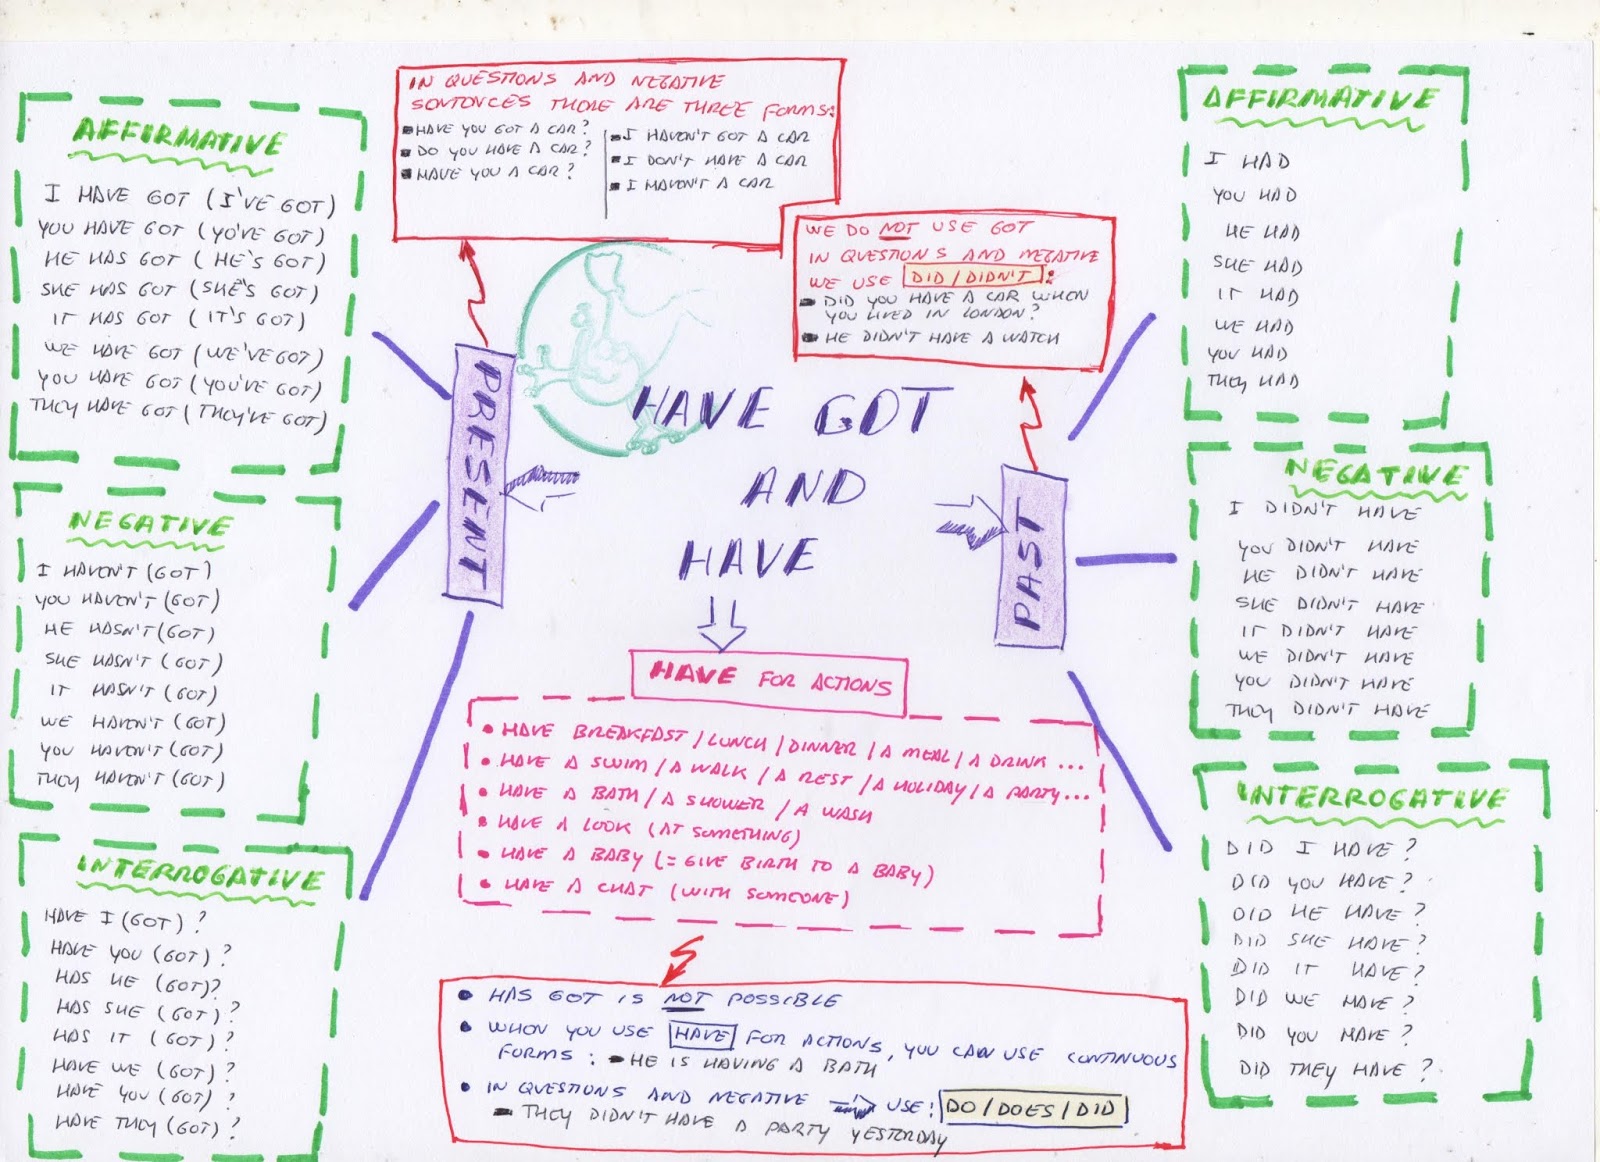 HAVE GOT
AND
HAVE
PRESENT
IN QUESTIONS AND NEGATIVE
SENTENCES THERE ARE THREE FORMS:
HAVE YOU GOT A CAR?
DO YOU HAVE A CAR?
HAVE YOU A CAR?
I HAVEN'T GOT A CAR
I DON'T HAVE A CAR
I HAVEN'T A CAR
AFFIRMATIVE
I HAVE GOT (I'VE GOT)
YOU HAVE GOT (YO'VE GOT)
HE HAS GOT (HE'S GOT)
SHE HAS GOT (SHE'S GOT)
IT HAS GOT (IT'S GOT)
WE HAVE GOT (WE'VE GOT)
YOU HAVE GOT (YOU'VE GOT)
THEY HAVE GOT (THEY'VE GOT)
NEGATIVE
I HAVEN'T (GOT)
YOU HAVEN'T (GOT)
HE HASN'T (GOT)
SHE HASN'T (GOT)
IT HASN'T (GOT)
WE HAVEN'T (GOT)
YOU HAVEN'T (GOT)
THEY HAVEN'T (GOT)
INTERROGATIVE
HAVE I (GOT)?
HAVE YOU (GOT)?
HAS HE (GOT)?
HAS SHE (GOT)?
HAS IT (GOT)?
HAVE WE (GOT)?
HAVE YOU (GOT)?
HAVE THEY (GOT)?
PAST
WE DO NOT USE GOT
IN QUESTIONS AND NEGATIVE
WE USE DID/DIDN'T:
DID YOU HAVE A CAR WHEN
YOU LIVED IN LONDON?
HE DIDN'T HAVE A WATCH
AFFIRMATIVE
I HAD
YOU HAD
HE HAD
SHE HAD
IT HAD
WE HAD
YOU HAD
THEY HAD
NEGATIVE
I DIDN'T HAVE
YOU DIDN'T HAVE
HE DIDN'T HAVE
SHE DIDN'T HAVE
IT DIDN'T HAVE
WE DIDN'T HAVE
YOU DIDN'T HAVE
THEY DIDN'T HAVE
INTERROGATIVE
DID I HAVE?
DID YOU HAVE?
DID HE HAVE?
DID SHE HAVE?
DID IT HAVE?
DID WE HAVE?
DID YOU HAVE?
DID THEY HAVE?
HAVE FOR ACTIONS
• HAVE BREAKFAST / LUNCH / DINNER / A MEAL / A DRINK ...
• HAVE A SWIM / A WALK / A REST / A HOLIDAY / A PARTY...
• HAVE A BATH / A SHOWER / A WASH
• HAVE A LOOK (AT SOMETHING)
• HAVE A BABY (= GIVE BIRTH TO A BABY)
• HAVE A CHAT (WITH SOMEONE)
• HAS GOT IS NOT POSSIBLE
• WHEN YOU USE HAVE FOR ACTIONS, YOU CAN USE CONTINUOUS
FORMS: HE IS HAVING A BATH
• IN QUESTIONS AND NEGATIVE USE: DO/DOES/DID
THEY DIDN'T HAVE A PARTY YESTERDAY